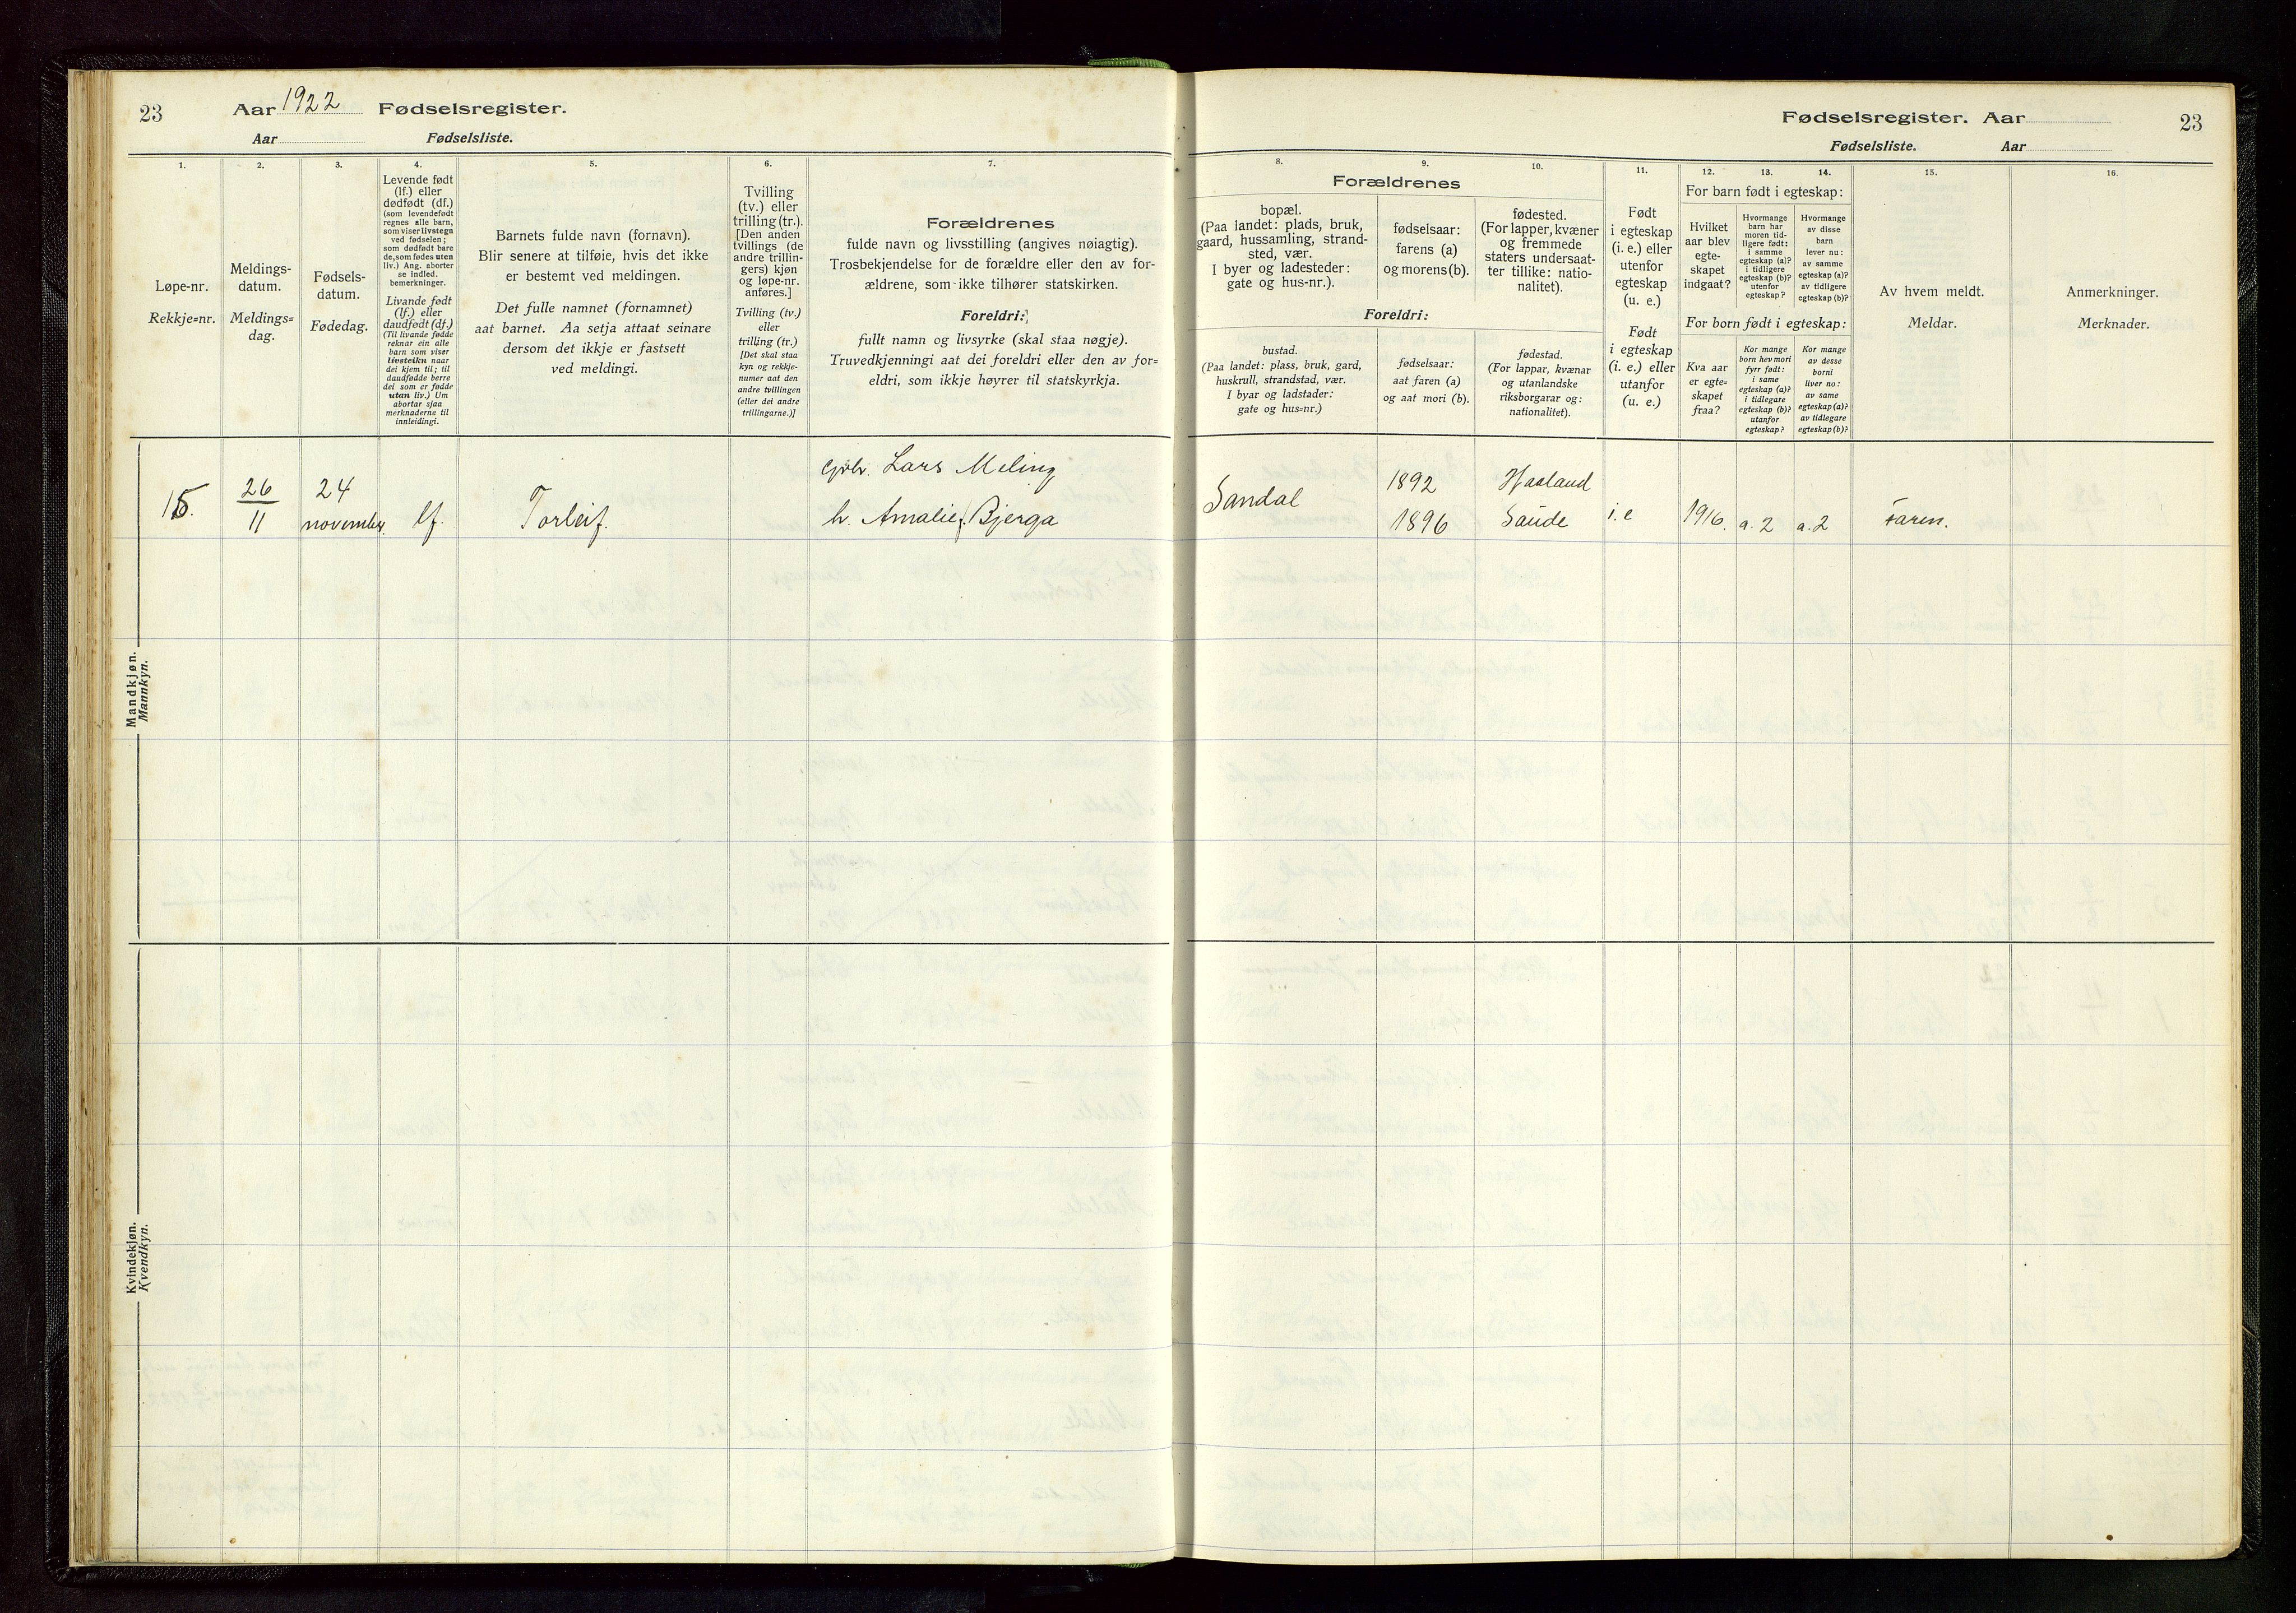 23
Aar 1922 Fødselsregister.
Aar Fødselsliste.
1.
Løpe-nr.
Rekkje=nr.
2.
Meldings-
datum.
Meldings=
dag.
3.
Fødsels-
datum.
Fødedag.
4.
Levende født
(lf.) eller
dødfødt (df.)
(som levendefødt
regnes alle barn,
som viser livstegn
ved fødselen;
som dødfødt bare
de, som fødes uten
liv.) Ang. aborter
se indled.
bemerkninger.
Livande født
(lf.) eller
daudfødt (df.)
(Til livande fødde
reknar ein alle
barn som viser
livsteikn naar
dei kjem til; til
daudfødde berre
dei som er fødde
utan liv.) Um
abortar sjaa
merknaderne til
innleidingi.
5.
Barnets fulde navn (fornavn).
Blir senere at tilføie, hvis det ikke
er bestemt ved meldingen.
Det fulle namnet (fornamnet)
aat barnet. Aa setja attaat seinare
dersom det ikkje er fastsett
ved meldingi.
6.
Tvilling
(tv.) eller
trilling (tr.).
[Den anden
tvillings (de
andre trillin-
gers) kjøn
og løpe-nr.
anføres.]
Tvilling (tv.)
eller
trilling (tr.)
[Det skal staa
kyn og rekkje-
numer aat den
andre tvillingen
(eller dei andre
trillingarne.)]
7.
Forældrenes
fulde navn og livsstilling (angives nøiagtig).
Trosbekjendelse for de forældre eller den av for-
ældrene, som ikke tilhører statskirken.
Foreldri:
fullt namn og livsyrke (skal staa nøgje).
Truvedkjenningi aat dei foreldri eller den av for=
eldri, som ikkje høyrer til statskyrkja.
Mandkjøn.
Mannkyn.
15.
26
11
24
november.
lf.
Torleif.
gbr. Lars Meling
h. Amalie f. Bjerga
Kvindekjøn.
Kvendkyn.
Fødselsregister. Aar
23
Fødselsliste. Aar
8.
Forældrenes
bopæl.
(Paa landet: plads, bruk,
gaard, hussamling, strand-
sted, vær.
I byer og ladesteder:
gate og hus-nr.).
Foreldri:
bustad.
(Paa landet: plass, bruk, gard,
huskrull, strandstad, vær.
I byar og ladstader:
gate og hus=nr.)
9.
fødselsaar:
farens (a)
og morens (b).
fødselsaar:
aat faren (a)
og aat mori (b).
10.
fødested.
(For lapper, kvæner
og fremmede
staters undersaat-
ter tillike: natio-
nalitet).
fødestad.
(For lappar, kvænar
og utanlandske
riksborgarar og:
nationalitet).
11.
Født
i egteskap
(i. e.) eller
utenfor
egteskap
(u. e.)
Født
i egteskap
(i. e.) eller
utanfor
(u. e.)
12.
13.
14.
For barn født i egteskap:
Hvilket
aar blev
egte-
skapet
indgaat?
Hvormange
barn har
moren tid-
ligere født:
i samme
egteskap (a)?
i tidligere
egteskap (b)?
utenfor
egteskap?
Hvormange
av disse
barn
lever nu:
av samme
egteskap (a)?
av tidligere
egteskap (b)?
For born født i egteskap:
Kva aar
er egte=
skapet
fraa?
Kor mange
born hev mori
fyrr født:
i same
egteskap (a)?
i tidlegare
egteskap (b)?
utanfor
egteskap?
Kor mange
av desse
borni
liver no:
av same
egteskap (a)?
av tidlegare
egteskap (b)?
15.
Av hvem meldt.
Meldar.
16.
Anmerkninger.
Merknader.
Sandal
1892
1896
Haaland
Saude
i. e
1916.
a. 2
a. 2
Faren.